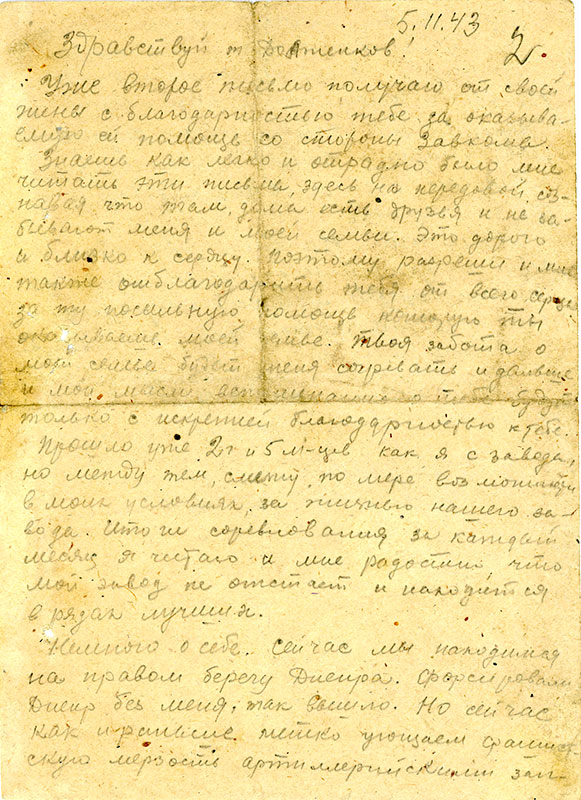 5.11.43
2.
Здравствуй т. Долженков!
Уже второе письмо получаю от своей
жены с благодарностью тебе за оказыва-
емую ей помощь со стороны Завкома.
Знаешь как легко и отрадно было мне
читать эти письма, здесь на передовой, соз-
навая что там, дома есть друзья и не за-
бывают меня и моей семьи. Это дорого
и близко к сердцу. Поэтому разреши и мне
также отблагодарить тебя от всего сердца
за ту посильную помощь которую ты
оказываешь моей семье. Твоя забота о
моей семье будет меня согревать и дальше
и мои мысли о тебе будут
только с искренней благодарностью к тебе.
Прошло уже 2 г и 5 м-цев как я с завода,
но между тем, слежу по мере возможности
в моих условиях, за жизнью нашего за-
вода. Итоги соревнования за каждый
месяц я читаю и мне радостно что
мой завод не отстает и находится
в рядах лучших.
Немного о себе. Сейчас мы находимся
на правом берегу Днепра. Форсировали
Днепр без меня, так вышло. Но сейчас
как и раньше метко угощаем фашист-
скую мерзость артиллерийским зал-